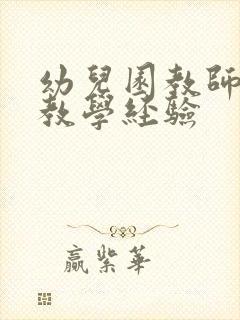 幼兒園教師
教學經驗
嬴紫華